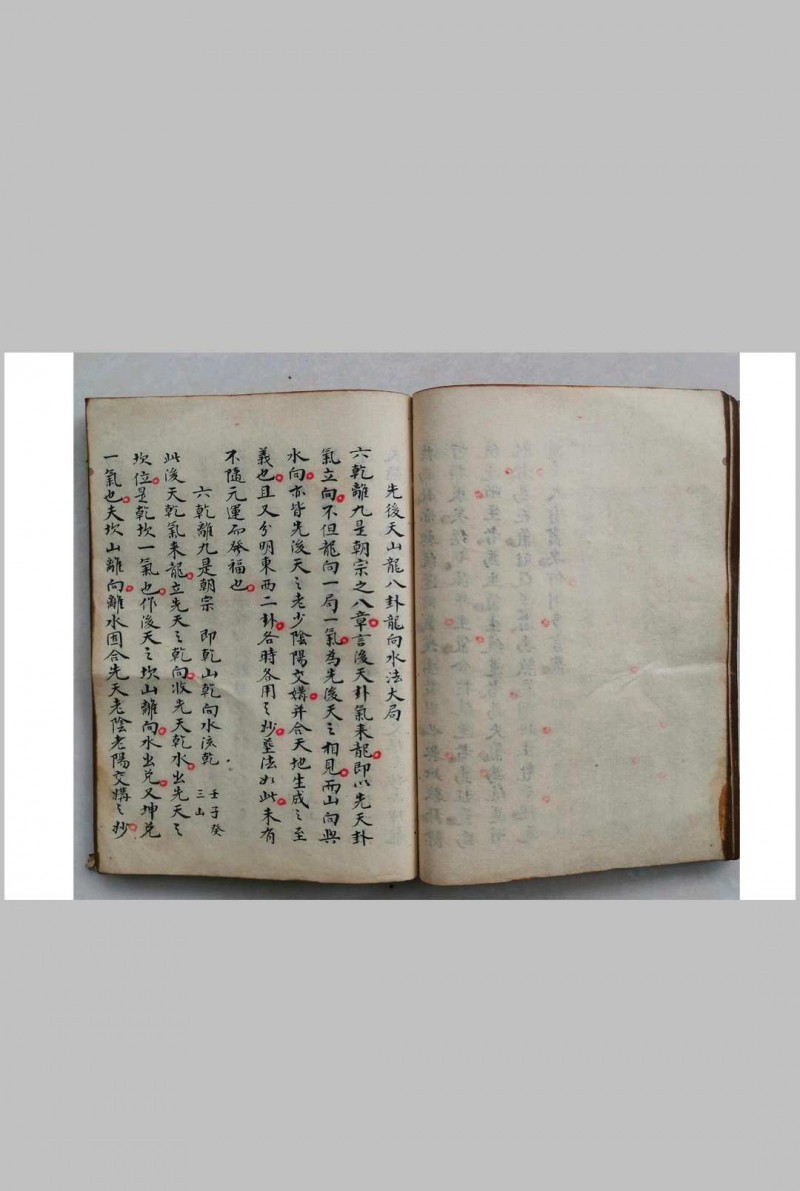 先後天山龍八卦龍向水法大局
六乾離九是朝宗之八章言後天卦氣来龍即以先天卦
氣立向不但龍向一局一氣為先後天之相見而山向與
水向亦皆先後天之老少陰陽交媾并合天地生成之至
義也且又分明東西二卦各時各用之妙塟法如此未有
不隨元運而發福也
六乾離九是朝宗 即乾山乾向水流乾 壬子癸三山
此後天乾氣来龍立先天之乾向收先天乾水出先天之
坎位是乾坎一氣也作後天之坎山離向水出兌又坤兌
一氣也夫坎山離向離水固合先天老陰老陽交媾之妙